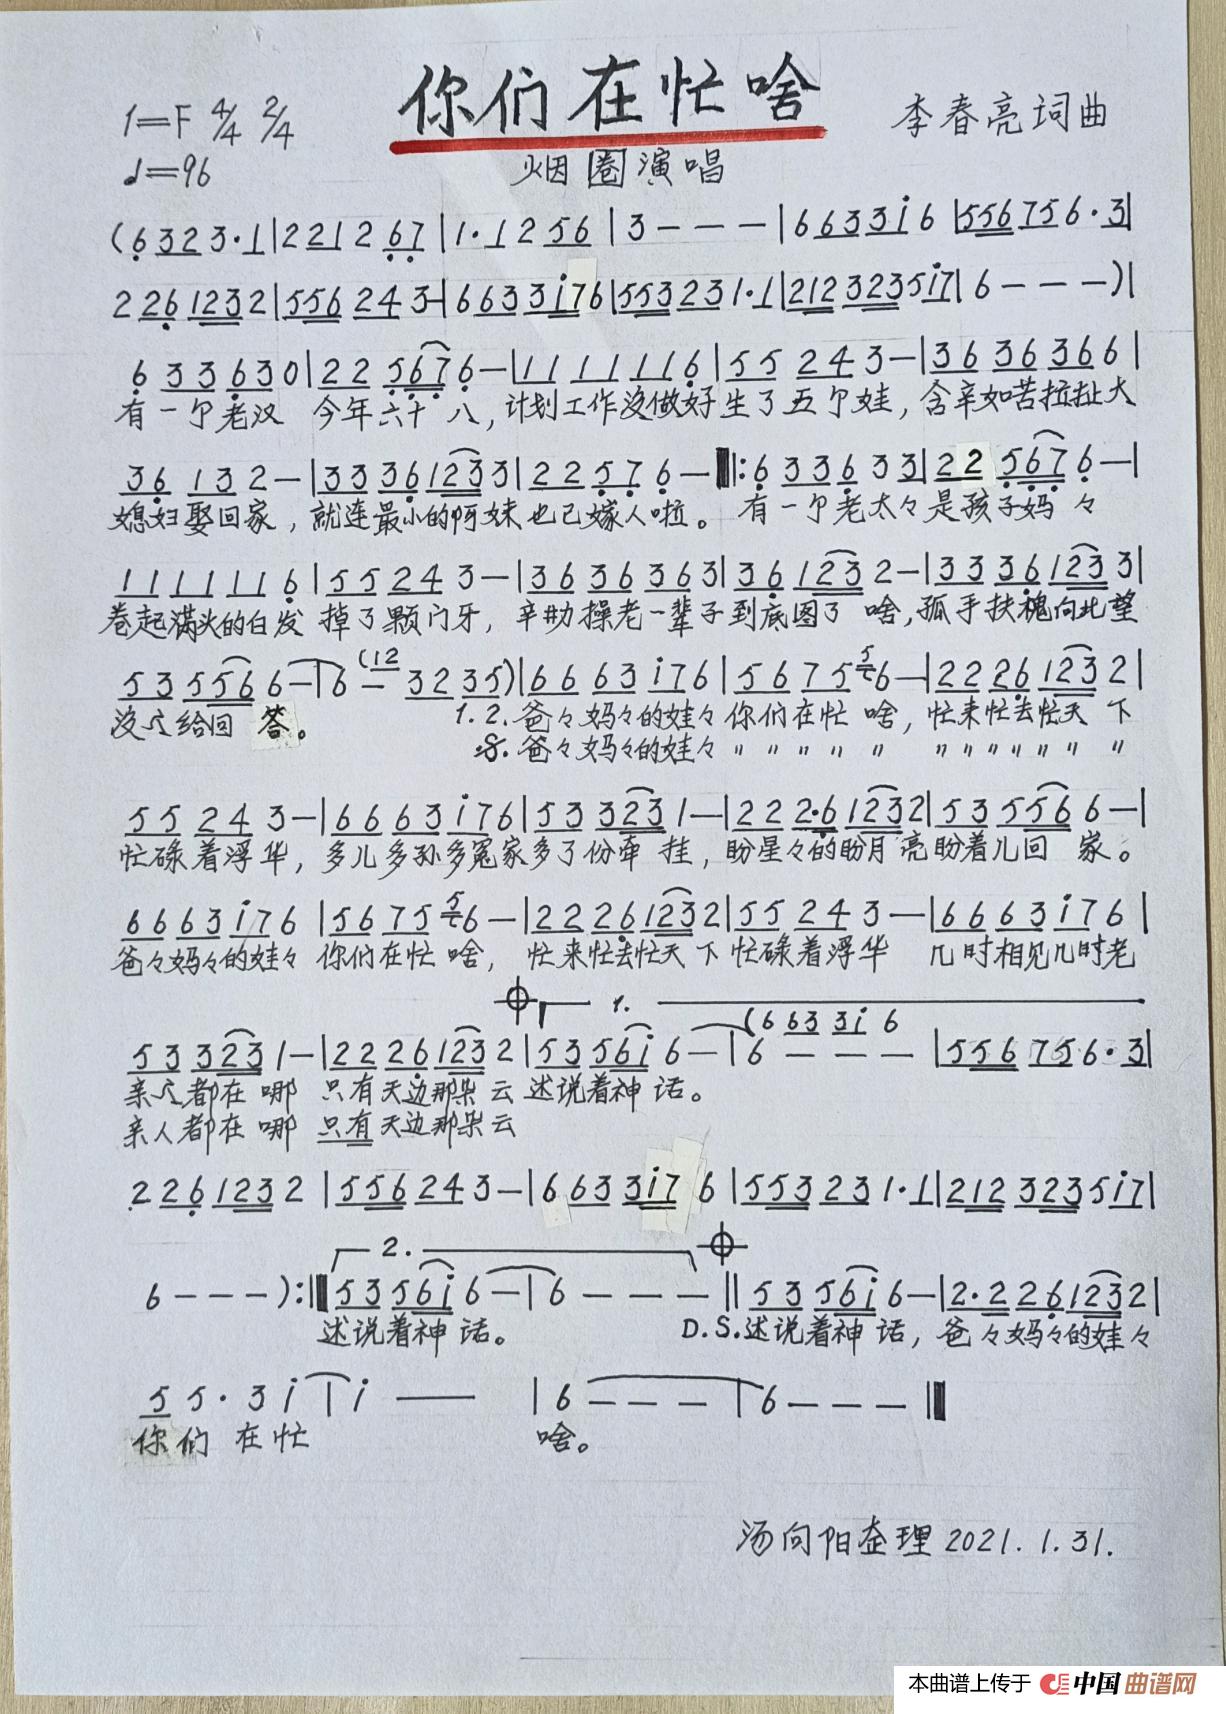 你们在忙啥
1=F 4/4 2/4
李春亮词曲
♩=96
烟圈演唱
(6 3 2 3·1|2 2 1 2 6 7|1·1 2 5 6|3 - - -|6 6 3 3 i 6|5 5 6 7 5 6·3|
2 2 6 1 2 3 2|5 5 6 2 4 3 -|6 6 3 3 i 7 6|5 5 3 2 3 1·1|2 1 2 3 2 3 5 i 7|6 - - -)|
6 3 3 6 3 0|2 2 5 6 7 6 -|1 1 1 1 1 1 6|5 5 2 4 3 -|3 6 3 6 3 6 6|
有一个老汉 今年六十八,计划工作没做好生了五个娃,含辛如苦拉扯大
3 6 1 3 2 -|3 3 3 6 1 2 3 3|2 2 5 7 6 -‖:6 3 3 6 3 3|2 2 5 6 7 6 -|
媳妇娶回家,就连最小的阿妹也已嫁人啦。有一个老太々是孩子妈々
1 1 1 1 1 1 6|5 5 2 4 3 -|3 6 3 6 3 6 3|3 6 1 2 3 2 -|3 3 3 6 1 2 3 3|
卷起满头的白发 掉了颗门牙,辛劫操老一辈子到底图了啥,孤手扶槐向北望
5 3 5 5 6 6 -|6 (1 2 - 3 2 3 5)|6 6 6 3 i 7 6|5 6 7 5 5 6 -|2 2 2 6 1 2 3 2|
没个给回答。 1. 2. 爸々妈々的娃々你们在忙啥,忙来忙去忙天下
𝄋. 爸々妈々的娃々 〃 〃 〃 〃 〃 〃 〃 〃 〃 〃 〃 〃
5 5 2 4 3 -|6 6 6 3 i 7 6|5 3 3 2 3 1 -|2 2 2·6 1 2 3 2|5 3 5 5 6 6 -|
忙碌着浮华,多儿多孙多冤家多了份牵挂,盼星々的盼月亮盼着儿回家。
6 6 6 3 i 7 6|5 6 7 5 5 6 -|2 2 2 6 1 2 3 2|5 5 2 4 3 -|6 6 6 3 i 7 6|
爸々妈々的娃々 你们在忙啥,忙来忙去忙天下忙碌着浮华 几时相见几时老
1.
(6 6 3 3 i 6
5 3 3 2 3 1 -|2 2 2 6 1 2 3 2|5 3 5 6 i 6 -|6 - - -|5 5 6 7 5 6·3|
亲个都在哪 只有天边那朵云述说着神话。
亲人都在哪 只有天边那朵云
2 2 6 1 2 3 2|5 5 6 2 4 3 -|6 6 3 3 i 7 6|5 5 3 2 3 1·1|2 1 2 3 2 3 5 i 7|
2.
6 - - -):‖5 3 5 6 i 6 -|6 - - -‖5 3 5 6 i 6 -|2·2 2 6 1 2 3 2|
述说着神话。 D.S.述说着神话,爸々妈々的娃々
5 5·3 i|i —|6 - - -|6 - - -‖
你们在忙 啥。
汤向阳整理 2021.1.31.
本曲谱上传于 中国曲谱网